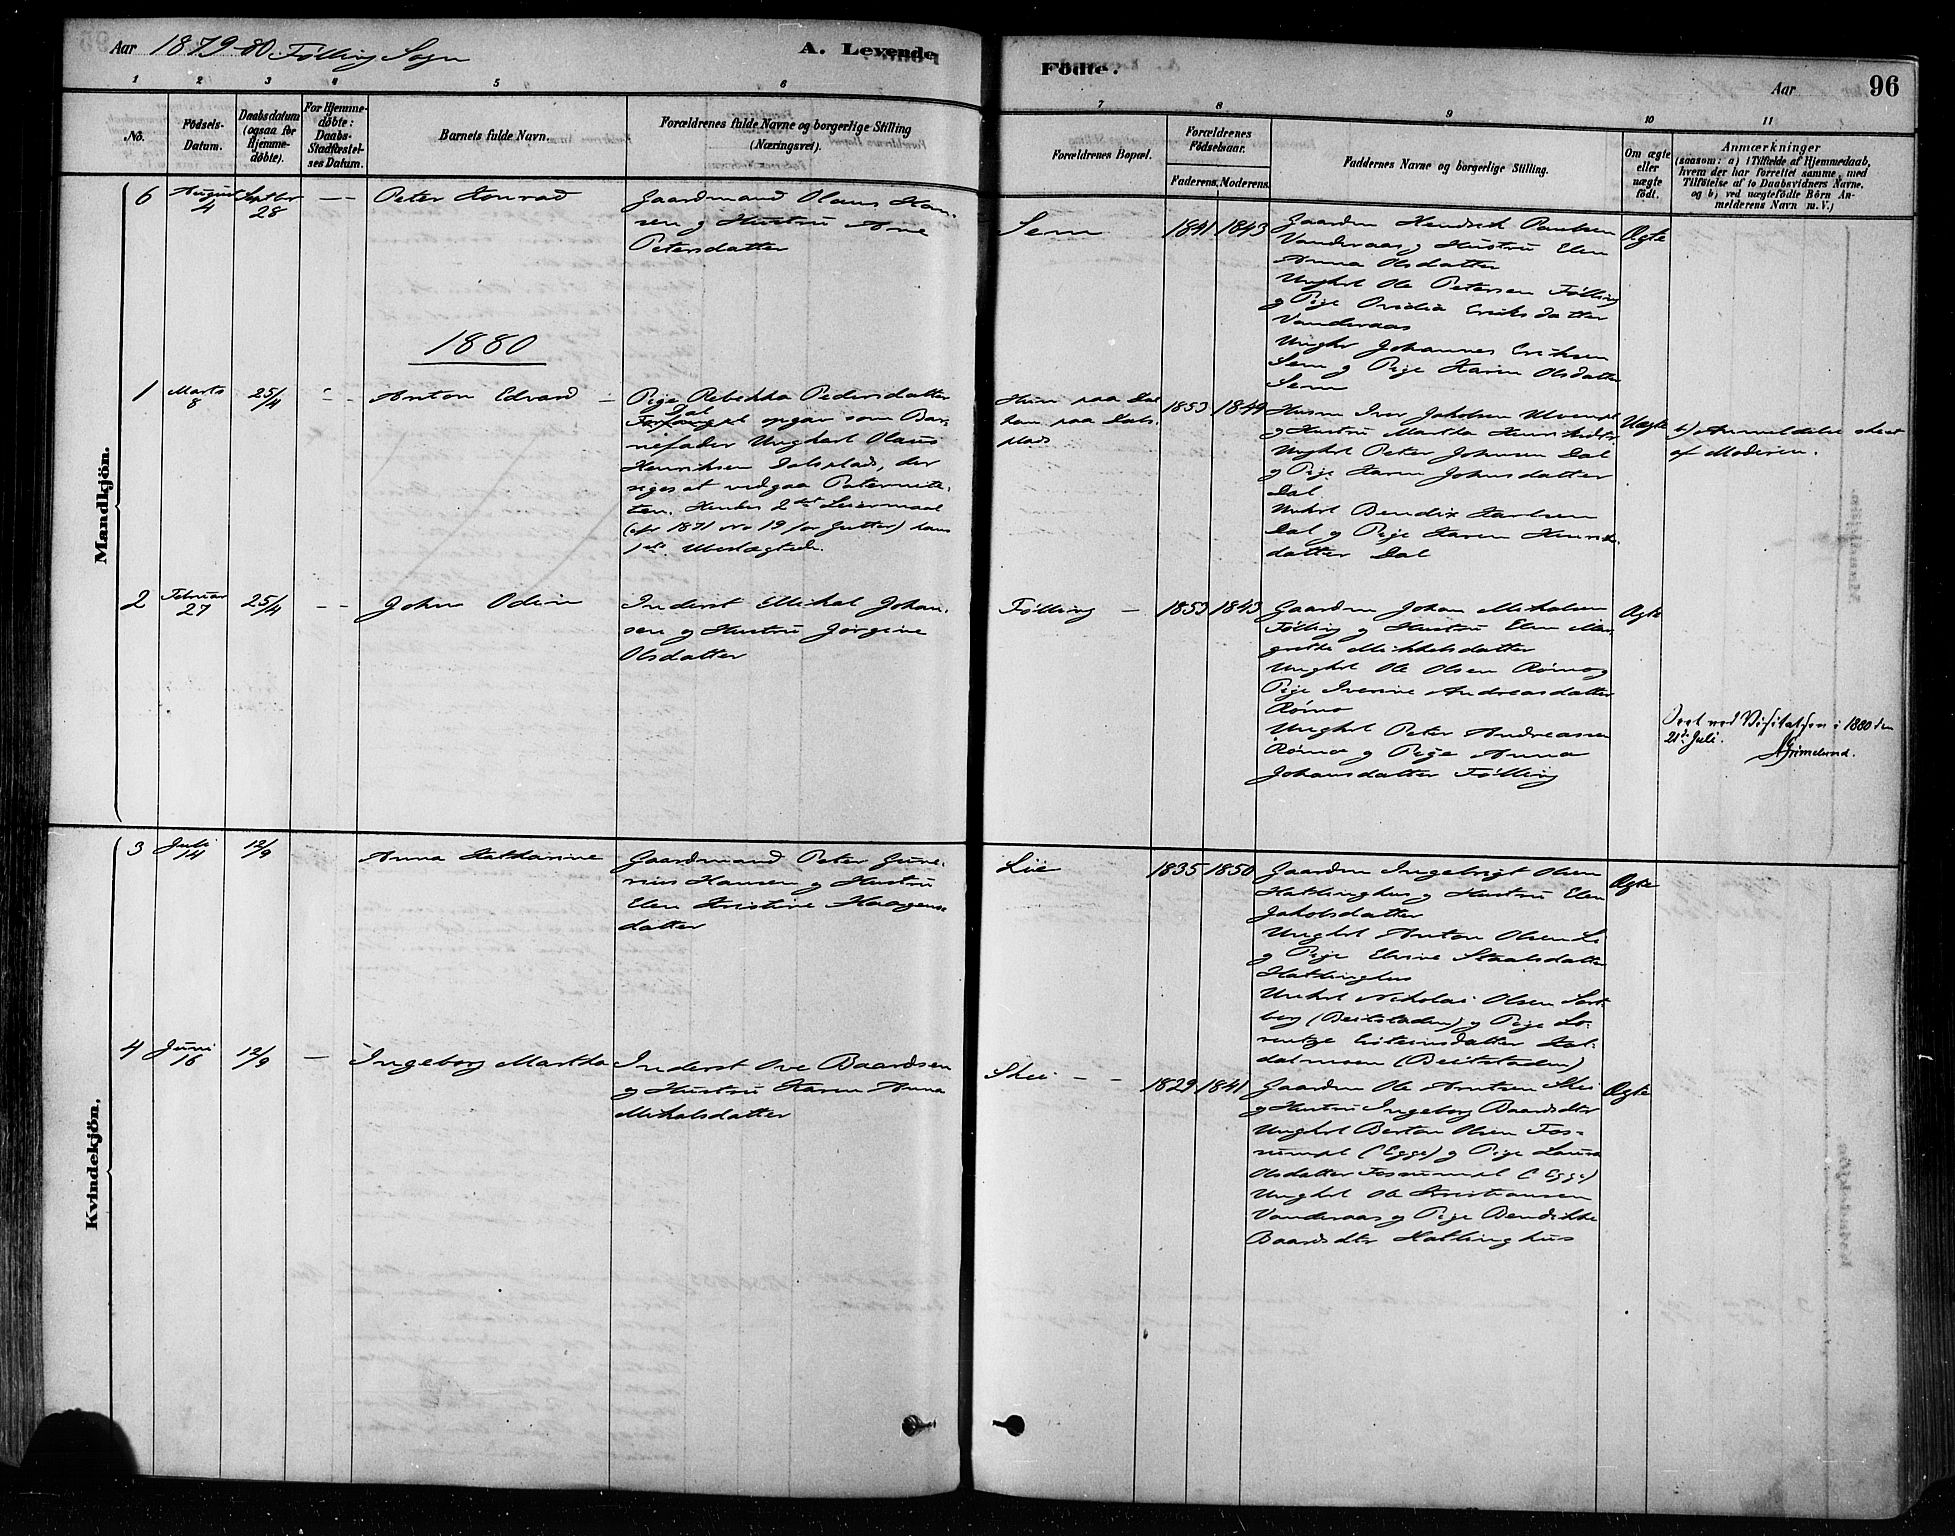 Aar 1879-80. Følling Sogn
A. Levende
Födte.
Aar
96
1 2 3 4 5 6
7 8 9 10 11
No.
Födsels-Datum.
Daabsdatum (ogsaa for Hjemmedöbte).
For Hjemmedöbte: Daabs-Stadfæstelses Datum.
Barnets fulde Navn.
Forældrenes fulde Navne og borgerlige Stilling (Næringsvei).
Forældrenes Bopæl.
Forældrenes Födselsaar.
Faderens. Moderens.
Faddernes Navne og borgerlige Stilling.
Om ægte eller uægte födt.
Anmærkninger
(saasom: a) i Tilfælde af Hjemmedaab,
hvem der har forrettet samme, med
Tilföielse af to Daabsvidners Navne,
og b) ved uægtefödte Börn An-
melderens Navn m. V.)
Mandkjön.
6
August 4
Septbr 28
Peter Konrad
Gaardmand Olaus Han-
sen og Hustru Ane
Petersdatter
Sem
1841 1843
Gaardm Hendrik Paulsen
Vanderaas og Hustru Elen
Anna Olsdatter
Ungkrl Ole Petersen Følling
og Pige Ovidia Eriksdatter
Vanderaas
Ungkr Johannes Eriksen
Sem og Pige Karen Olsdatter
Sem
Ægte
1880
1
Marts 8
25/4
Anton Edvard
Pige Rebekka Pedersdatter
Dal
opgav som Bar-
nefader Ungkarl Olaus
Henriksen Dalsplads, der
siges at vedgaa Paternite-
ten. Hendes 2det Leiermaal
(cfr 1871 No 19 for Gutter) hans
1ste. Ubeslægtede.
Hun paa Dal
han paa Dals-
plads
1853 1849
Husm Iver Jakobsen
og Hustru Martha
Ungkrl Peter Johnsen Dal
og Pige Karen Johnsdatter
Dal
Ungkrl Bendix Karlsen
Dal og Pige Karen Henriks-
datter Dal
Uægte
b) Anmeldelse skeet
af Moderen.
2
Februar 27
25/4
Johan Odin
Inderst Mikal Johan-
sen og Hustru Jørgine
Olsdatter
Følling
1853 1843
Gaardm Johan Mikalsen
Følling og Hustru Elen Mar-
grethe Mikkelsdatter
Ungkrl Ole Olsen Rømo og
Pige Iverine Andreasdatter
Rømo
Ungkrl Peter Andreassen
Rømo og Pige Anna
Johansdatter Følling
Ægte
Seet ved Visitatsen i 1880 den
21de Juli. AGrimelund.
Kvindekjön.
3
Juli 14
12/9
Anna Katharine
Gaardmand Peter Gune-
rius Hansen og Hustru
Elen Kristine Haagens-
datter
Lie
1835 1850
Gaardm Ingebrigt Olsen
Hatlinghus og Hustru Elen
Jakobsdatter
Ungkrl Anton Olsen Li
og Pige Elisine Staalsdatter
Hatlinghus
Ungkrl Nikolai Olsen
berg (Beitstaden) og Pige Lo-
rentze
(Beitstaden)
Ægte
4
Juni 16
12/9
Ingeborg Martha
Inderst Ove Baardsen
og Hustru Karen Anna
Mikalsdatter
Skei
1829 1841
Gaardm Ole Arntsen Skei
og Hustru Ingeborg Baardsdtr
Ungkrl Bertan Olsen Fos-
sumpl (Egge) og Pige Laura
Olsdatter Fossumpl (Egge)
Ungkrl Ole Kristiansen
Vanderaas og Pige Bendikke
Baardsdtr Hatlinghus
Ægte